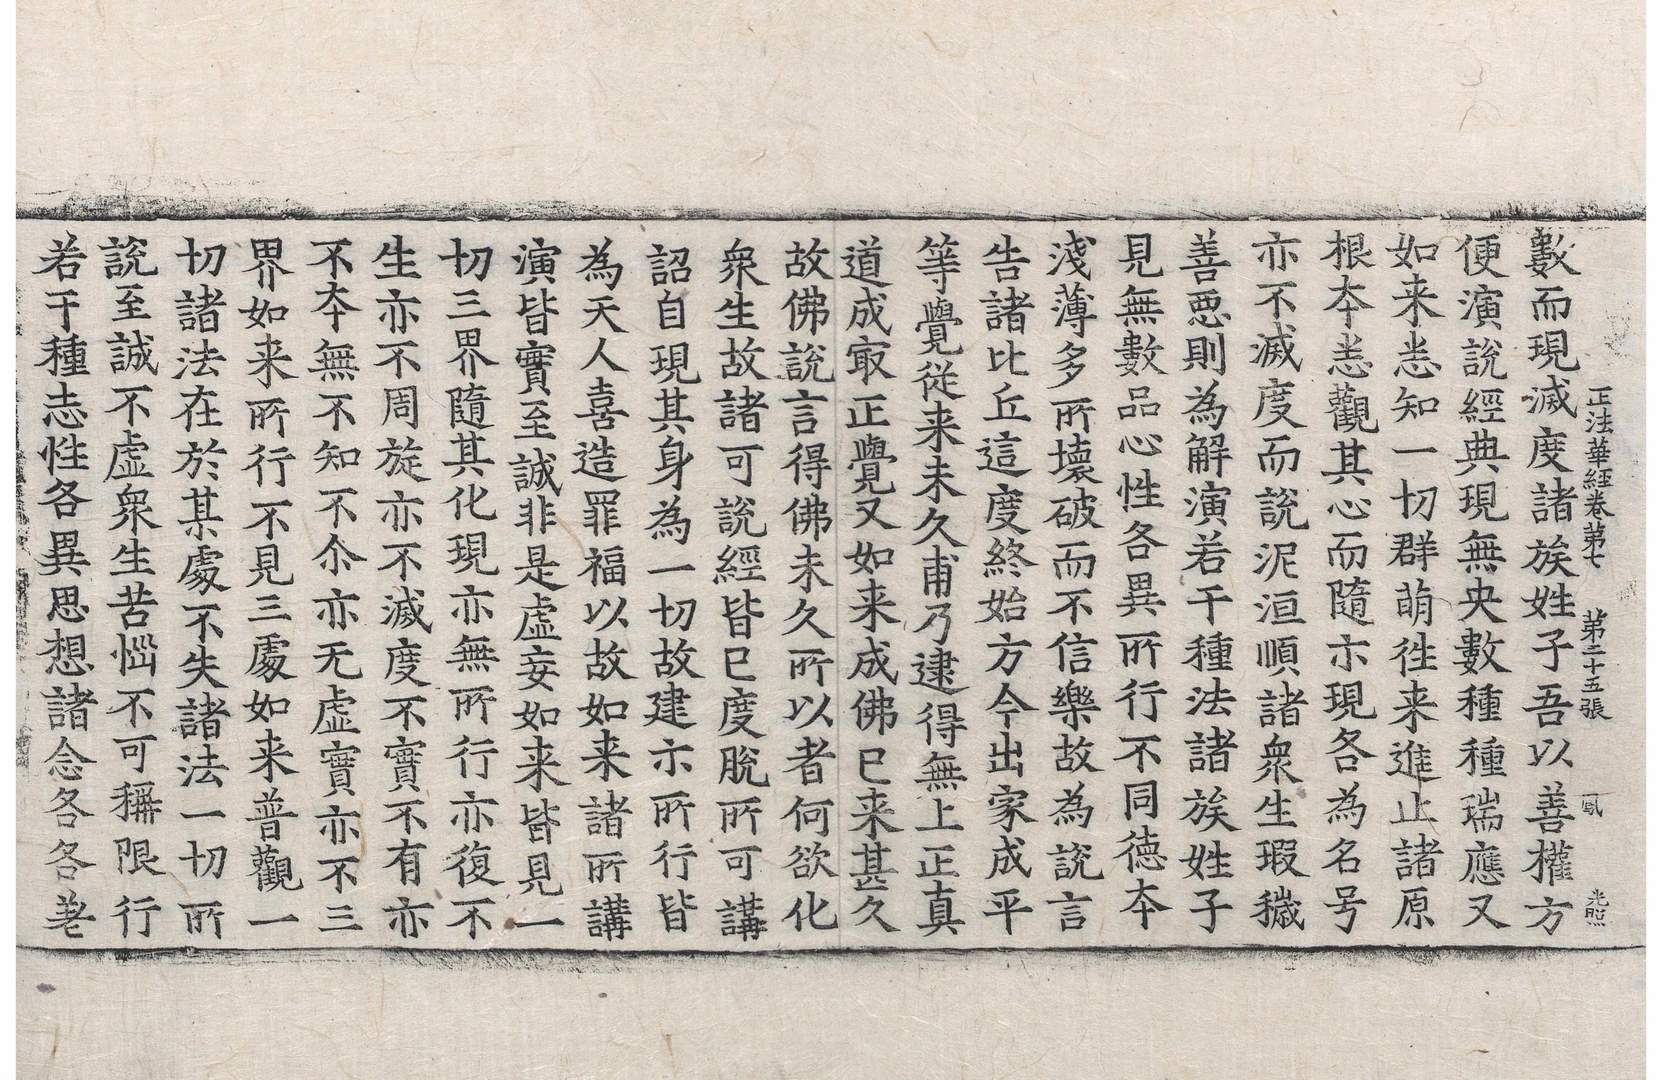 正法華経卷第七 第二十五張 鳳 光照
數而現滅度諸族姓子吾以善權方
便演說經典現無央數種種瑞應又
如来悉知一切群萌徃来進止諸原
根夲悉觀其心而隨示現各為名号
亦不滅度而說泥洹順諸衆生瑕穢
善惡則為解演若干種法諸族姓子
見無數品心性各異所行不同德夲
淺薄多所壞破而不信樂故為說言
告諸比丘這度終始方今出家成平
等覺從来未久甫乃逮得無上正真
道成㝡正覺又如来成佛已来甚久
故佛說言得佛未久所以者何欲化
衆生故諸可說經皆已度脫所可講
詔自現其身為一切故建示所行皆
為天人喜造罪福以故如来諸所講
演皆實至誠非是虛妄如来皆見一
切三界隨其化現亦無所行亦復不
生亦不周旋亦不滅度不實不有亦
不夲無不知不尒亦无虛實亦不三
界如来所行不見三處如来普觀一
切諸法在於某處不失諸法一切所
說至誠不虛衆生苦惱不可稱限行
若干種志性各異思想諸念各各差